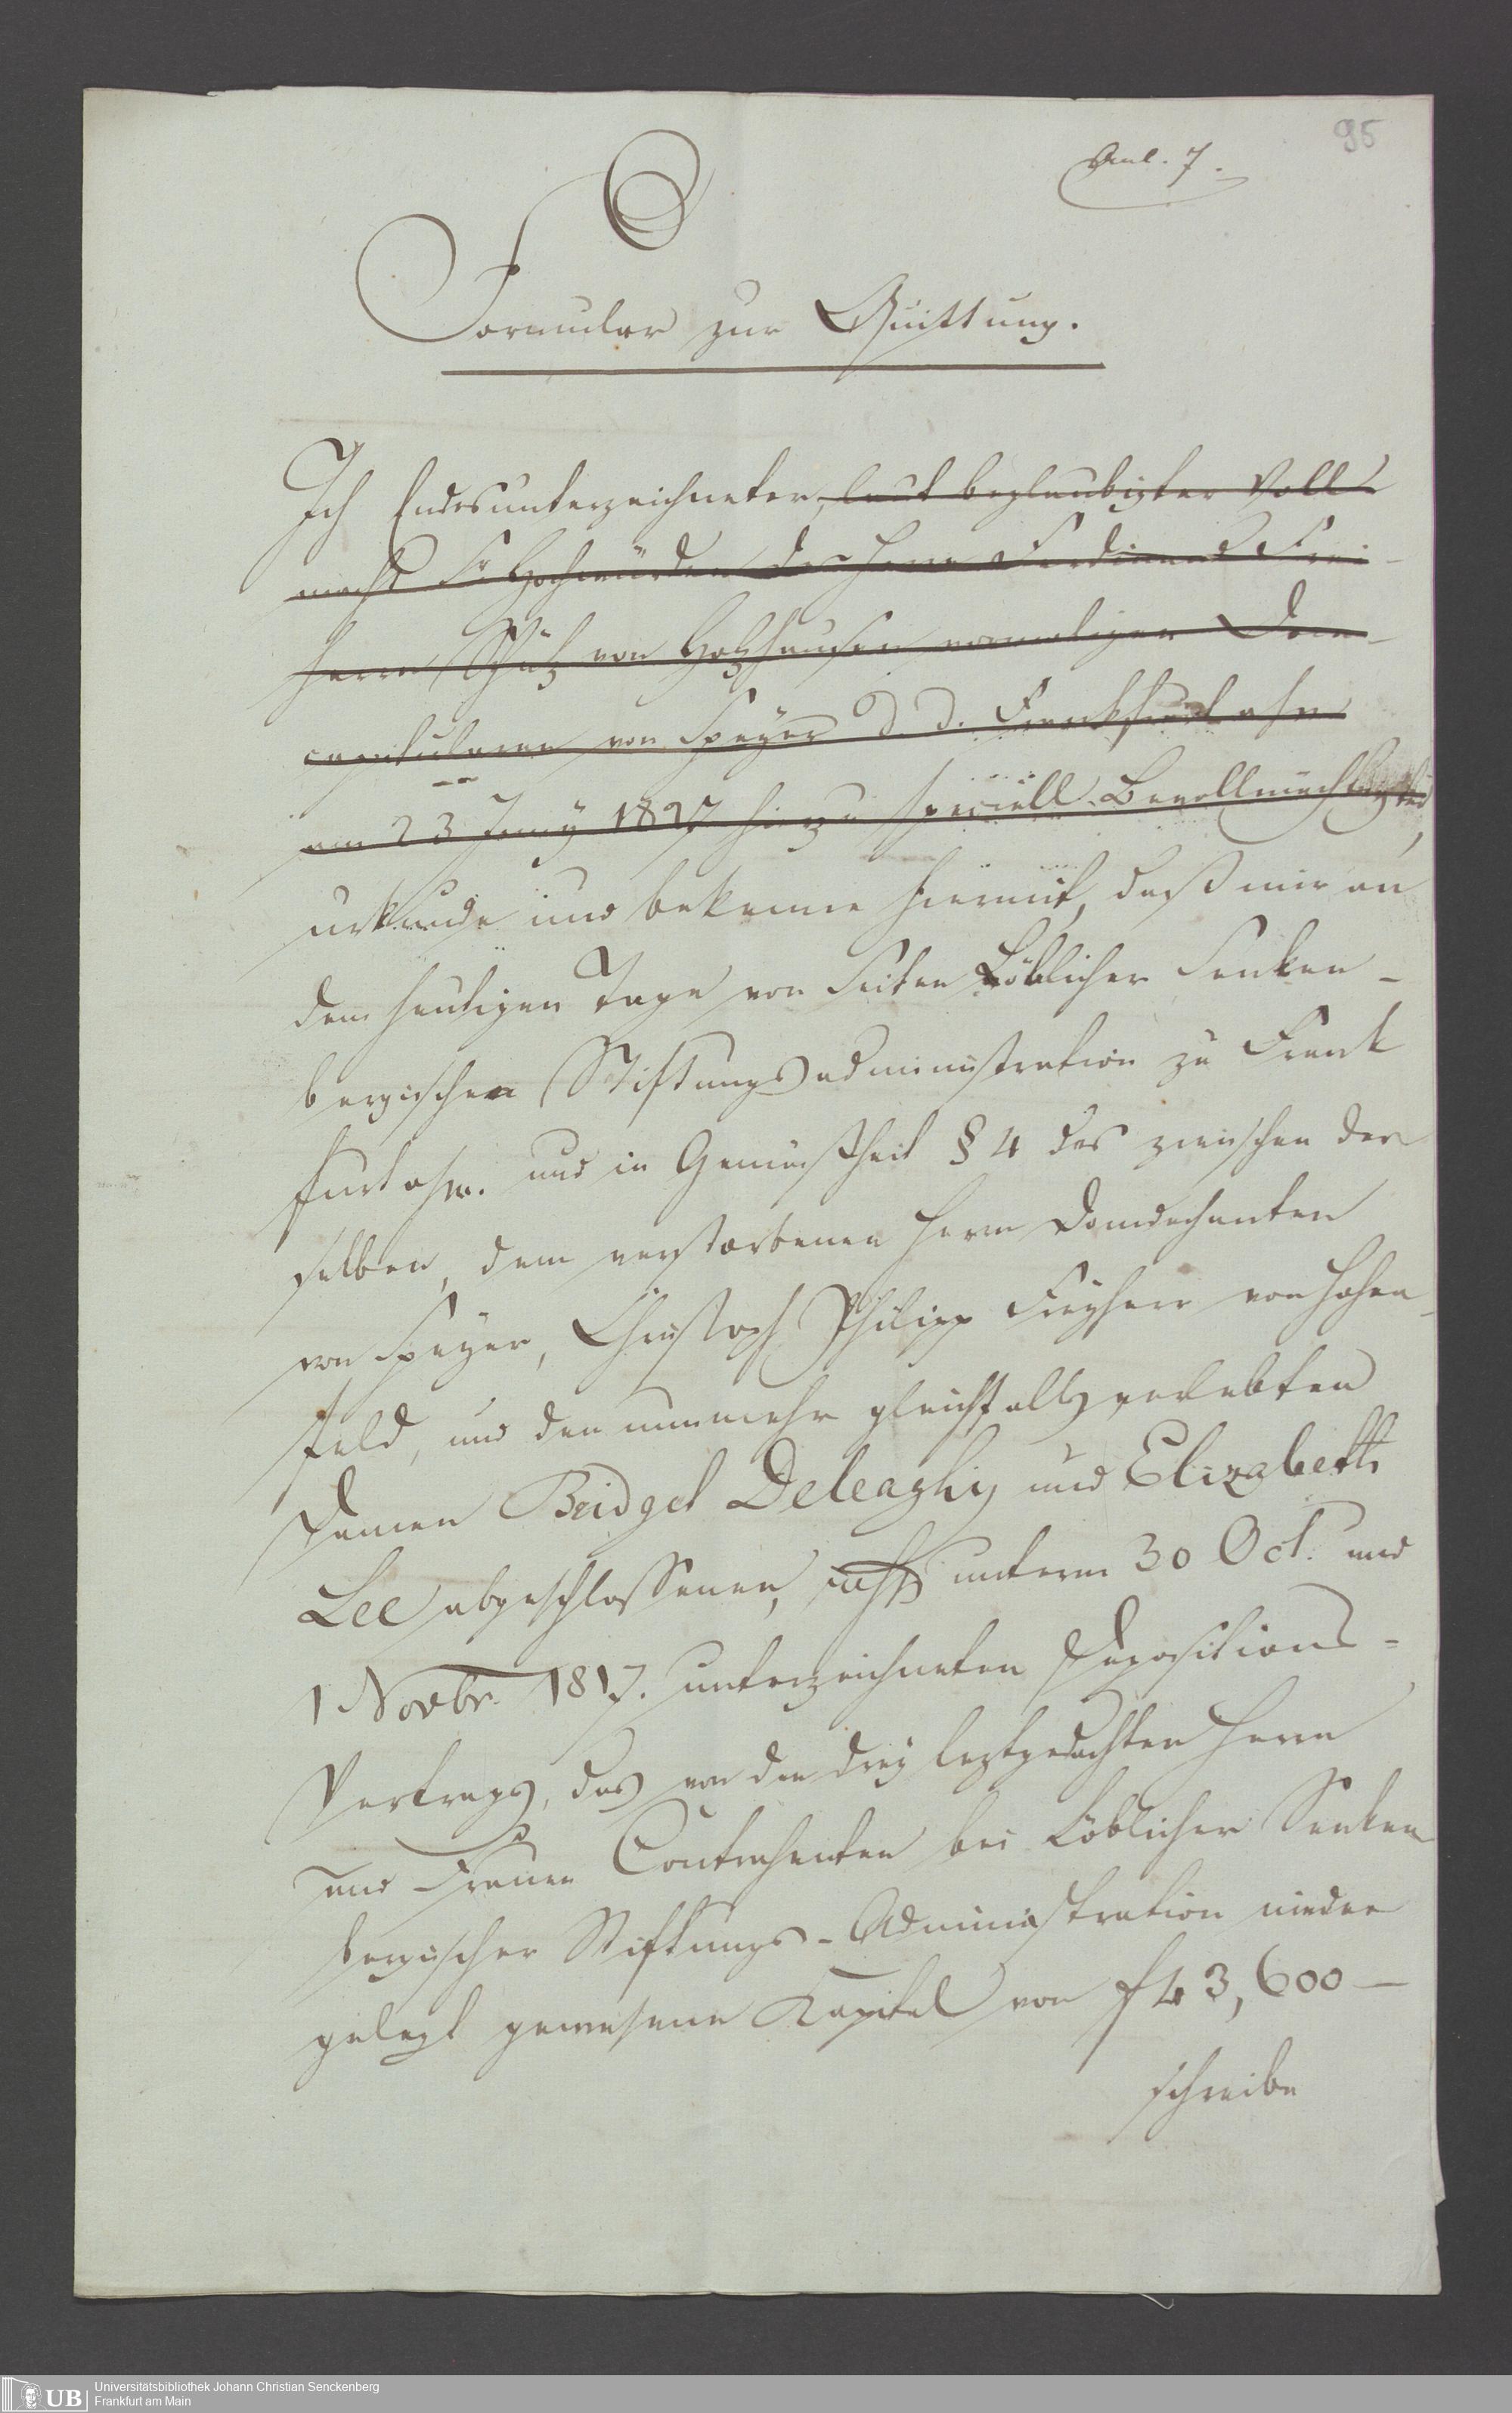 95
Anl. 7.
Formular zur Quittung.
Ich Endesunterzeichneter, laut beglaubigter Voll-
macht Sr Hochwürden des Herrn Ferdinand Frei-
herrn Schütz von Holzhausen vormaligen Dom-
capitularen von Speyer d. d. Frankfurt a/m
am 23 Juny 1827 hiezu speciell Bevollmächtigter,
urkunde und bekenne hiermit, daß mir an
dem heutigen Tage von Seiten Löblicher Senken-
bergischen Stiftungsadministration zu Frank
furt a/m. und in Gemäßheit § 4 des zwischen der
selben, dem verstorbenen Herrn Domdechanten
von Speyer, Christoph Philipp Freyherr von Hohen-
feld, und den nunmehr gleichfalls verlebten
Damen Bridget Deleazhy und Elizabeth
Lee abgeschlossenen, unterm 30 Oct. und
1 Novbr. 1817. unterzeichneten Depositions-
Vertrags, das von den drey letztgedachten Herrn
und Frauen Contrahenten bei Löblicher Senken
bergischer Stiftungs-Administration nieder
gelegt gewesene Kapital von f 43,600 —
schreibe
UB
Universitätsbibliothek Johann Christian Senckenberg
Frankfurt am Main